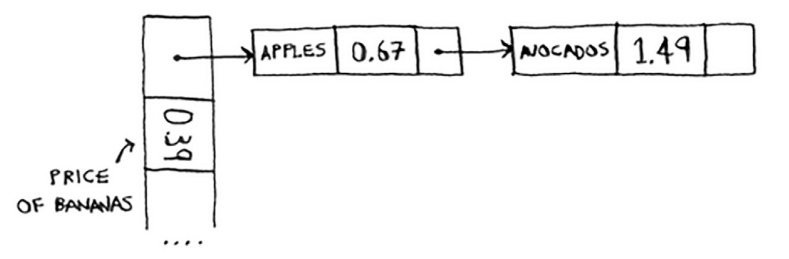 APPLES 0.67 AVOCADOS 1.49
0.39
PRICE
OF BANANAS
....